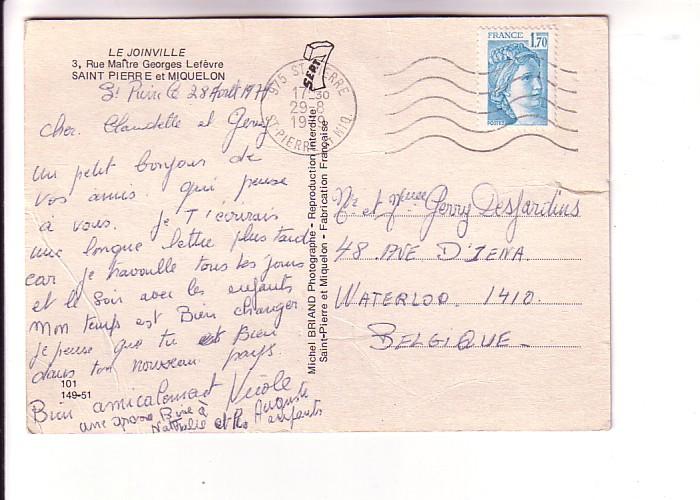 LE JOINVILLE
3, Rue Maître Georges Lefèvre
SAINT PIERRE et MIQUELON
St Pierre le 28 Août 197
cher Claudette et Gerry
un petit bonjour de
vos amis. qui pense
à vous. je T'écrirais
une longue lettre plus tard
car je travaille tous les jours
et le soir avec les enfants
mon temps est Bien changer
je pense que tu es Bien
dans ton nouveau pays.
Bien amicalement Nicole
une grosse Bise à Auguste
Nathalie et les enfants
101
149-51
Michel BRIAND Photographe - Reproduction Interdite
Saint-Pierre et Miquelon - Fabrication Française
7
SEPT.
975 ST PIERRE
17-30
29-8
19
ST PIERRE ET MIQ.
FRANCE 1,70
POSTES
Mr et Mme Gerry DesJardins
48. AVE D'IENA
WATERLOO. 1410.
BELGIQUE